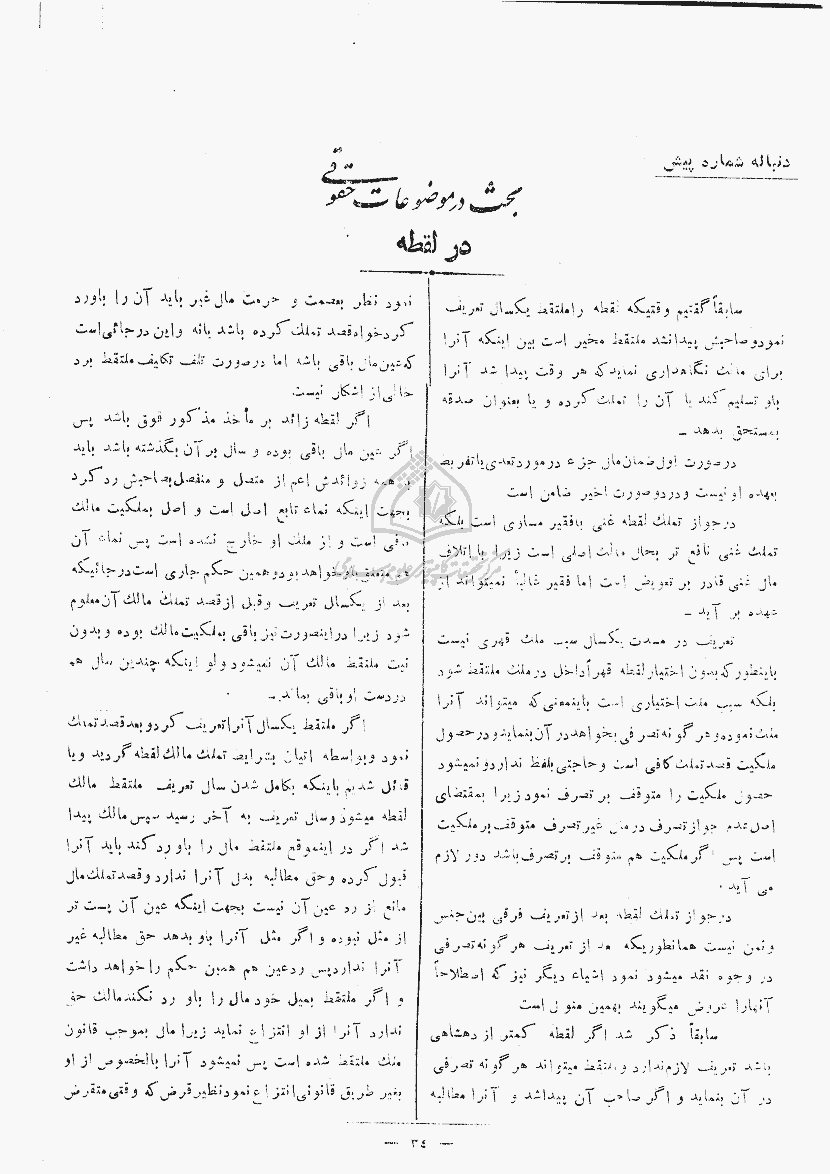 دنباله شماره پیش
بحث در موضوعات حقوقی
در لقطه
سابقاً گفتیم وقتیکه لقطه را ملتقط یکسال تعریف
نمود و صاحبش پیدا نشد ملتقط مخیر است بین اینکه آنرا
برای مالک نگاهداری نماید که هر وقت پیدا شد آنرا
باو تسلیم کند یا آن را تملک کرده و یا بعنوان صدقه
بمستحق بدهد ـ
در صورت اول ضمان مال جز در مورد تعدی یا تفریط
بعهده او نیست و در دو صورت اخیر ضامن است
در جواز تملک لقطه غنی با فقیر مساوی است بلکه
تملک غنی نافع تر بحال مالک اصلی است زیرا با اتلاف
مال غنی قادر بر تعویض است اما فقیر غالباً نمیتواند از
عهده بر آید ـ
تعریف در مدت یکسال سبب ملک قهری نیست
باینطور که بدون اختیار لقطه قهراً داخل در ملک ملتقط شود
بلکه سبب ملک اختیاری است باینمعنی که میتواند آنرا
ملک نموده و هر گونه تصرفی بخواهد در آن بنماید و در حصول
ملکیت قصد تملک کافی است و حاجتی بلفظ ندارد و نمیشود
حصول ملکیت را متوقف بر تصرف نمود زیرا بمقتضای
اصل عدم جواز تصرف در مال غیر تصرف متوقف بر ملکیت
است پس اگر ملکیت هم متوقف بر تصرف باشد دور لازم
می آید ۰
در جواز تملک لقطه بعد از تعریف فرقی بین جنس
و ثمن نیست همانطوریکه بعد از تعریف هر گونه تصرفی
در وجوه نقد میشود نمود اشیاء دیگر نیز که اصطلاحاً
آنهارا عروض میگویند بهمین منوال است
سابقاً ذکر شد اگر لقطه کمتر از ده شاهی
باشد تعریف لازم ندارد و ملتقط میتواند هر گونه تصرفی
در آن بنماید و اگر صاحب آن پیدا شد و آنرا مطالبه
نمود نظر بعصمت و حرمت مال غیر باید آن را باو رد
کرد خواه قصد تملک کرده باشد یا نه و این در جائی است
که عین مال باقی باشد اما در صورت تلف تکلیف ملتقط برد
خالی از اشکال نیست.
اگر لقطه زائد بر مأخذ مذکور فوق باشد پس
اگر عین مال باقی بوده و سال بر آن نگذشته باشد باید
با همه زوائدش اعم از متصل و منفصل بصاحبش رد کرد
بجهت اینکه نماء تابع اصل است و اصل بملکیت مالک
باقی است و از ملک او خارج نشده است پس نماء آن
هم متعلق باو خواهد بود و همین حکم جاری است در جائیکه
بعد از یکسال تعریف و قبل از قصد تملک مالک آن معلوم
شود زیرا در اینصورت نیز باقی بملکیت مالک بوده و بدون
نیت ملتقط مالک آن نمیشود و لو اینکه چندین سال هم
در دست او باقی بماند ـ
اگر ملتقط یکسال آنرا تعریف کرد و بعد قصد تملک
نمود و بواسطه اتیان بشرایط تملک مالک لقطه گردید و یا
قائل شدیم باینکه بکامل شدن سال تعریف ملتقط مالک
لقطه میشود و سال تعریف به آخر رسید سپس مالک پیدا
شد اگر در اینموقع ملتقط مال را باو رد کند باید آنرا
قبول کرده و حق مطالبه بدل آنرا ندارد و قصد تملک مال
مانع از رد عین آن نیست بجهت اینکه عین آن پست تر
از مثل نبوده و اگر مثل آنرا باو بدهد حق مطالبه غیر
آنرا ندارد پس رد عین هم همین حکم را خواهد داشت
و اگر ملتقط بمیل خود مال را باو رد نکند مالک حق
ندارد آنرا از او انتزاع نماید زیرا مال بموجب قانون
ملک ملتقط شده است پس نمیشود آنرا بالخصوص از او
بغیر طریق قانونی انتزاع نمود نظیر قرض که وقتی متقرض
— ۳٤ —